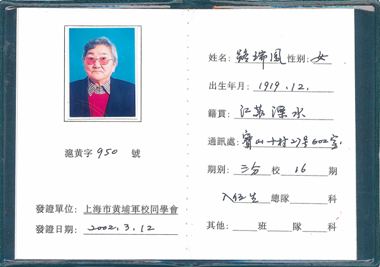 滬黄字 950 號
發證單位: 上海市黄埔軍校同學會
發證日期: 2002.3.12
姓名: 駱瑞風 性别: 女
出生年月: 1919.12.
籍貫: 江蘇溧水
通訊處: 寶山十村27号602室.
期别: 三分 校 16 期
入伍生 總隊 科
其他: 班 隊 科